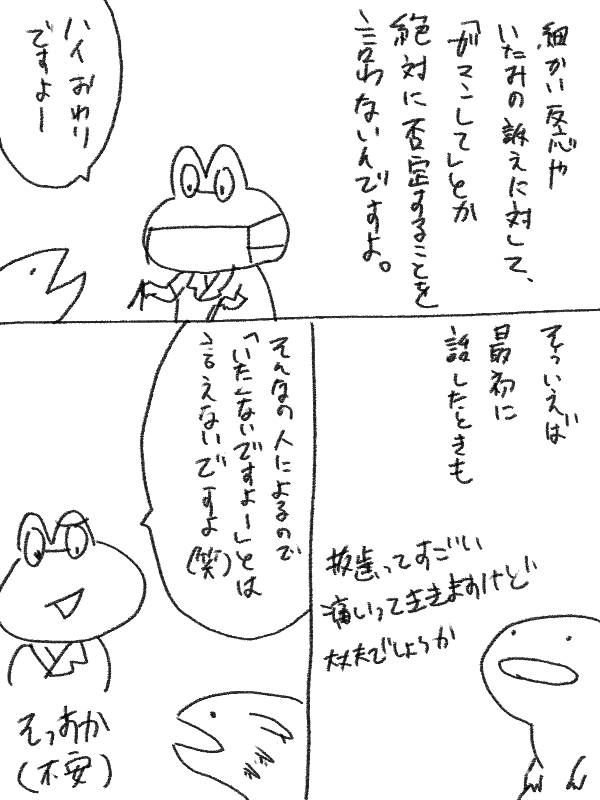 細かい反応や
いたみの訴えに対して、
「ガマンして」とか
絶対に否定することを
言わないんですよ。
ハイおわり
ですよー
そういえば
最初に
話したときも
抜歯ってすごい
痛いって聞きますけど
大丈夫でしょうか
そんなの人によるので
「いたくないですよー」とは
言えないですよ
(笑)
そっすか
(不安)